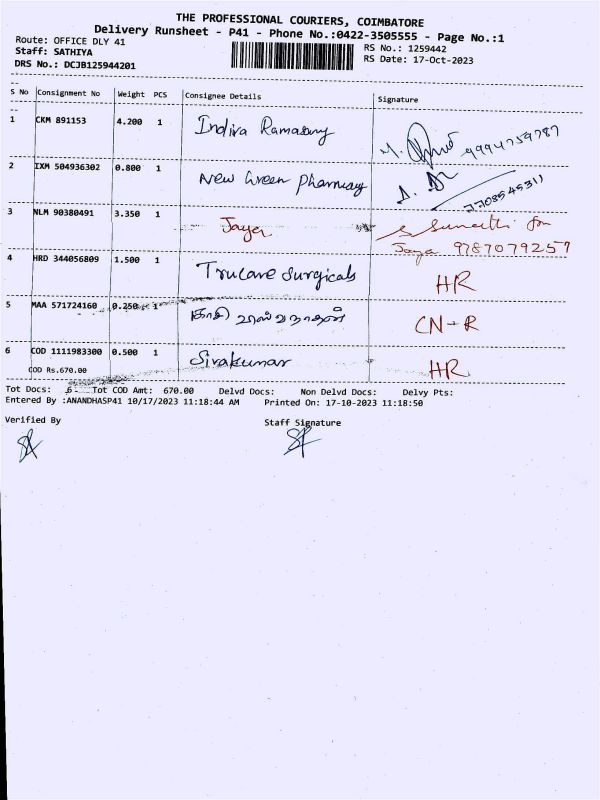 THE PROFESSIONAL COURIERS, COIMBATORE
Delivery Runsheet - P41 - Phone No.:0422-3505555 - Page No.:1
Route: OFFICE DLY 41
RS No.: 1259442
Staff: SATHIYA
RS Date: 17-Oct-2023
DRS No.: DCJB125944201
S No Consignment No Weight PCS Consignee Details Signature
1 CKM 891153 4.200 1 Indira Ramasamy 9994759787
2 IXM 504936302 0.800 1 New Green Pharmacy 7708545311
3 NLM 90380491 3.350 1 Jaya S Sumathi for
Jaya 9787079257
4 HRD 344056809 1.500 1 Trucare Surgicals HR
5 MAA 571724160 0.250 1 காசி விஸ்வநாதன் CN-R
6 COD 1111983300 0.500 1 Sivakumar HR
COD Rs.670.00
Tot Docs: 6 Tot COD Amt: 670.00 Delvd Docs: Non Delvd Docs: Delvy Pts:
Entered By :ANANDHASP41 10/17/2023 11:18:44 AM Printed On: 17-10-2023 11:18:50
Verified By Staff Signature